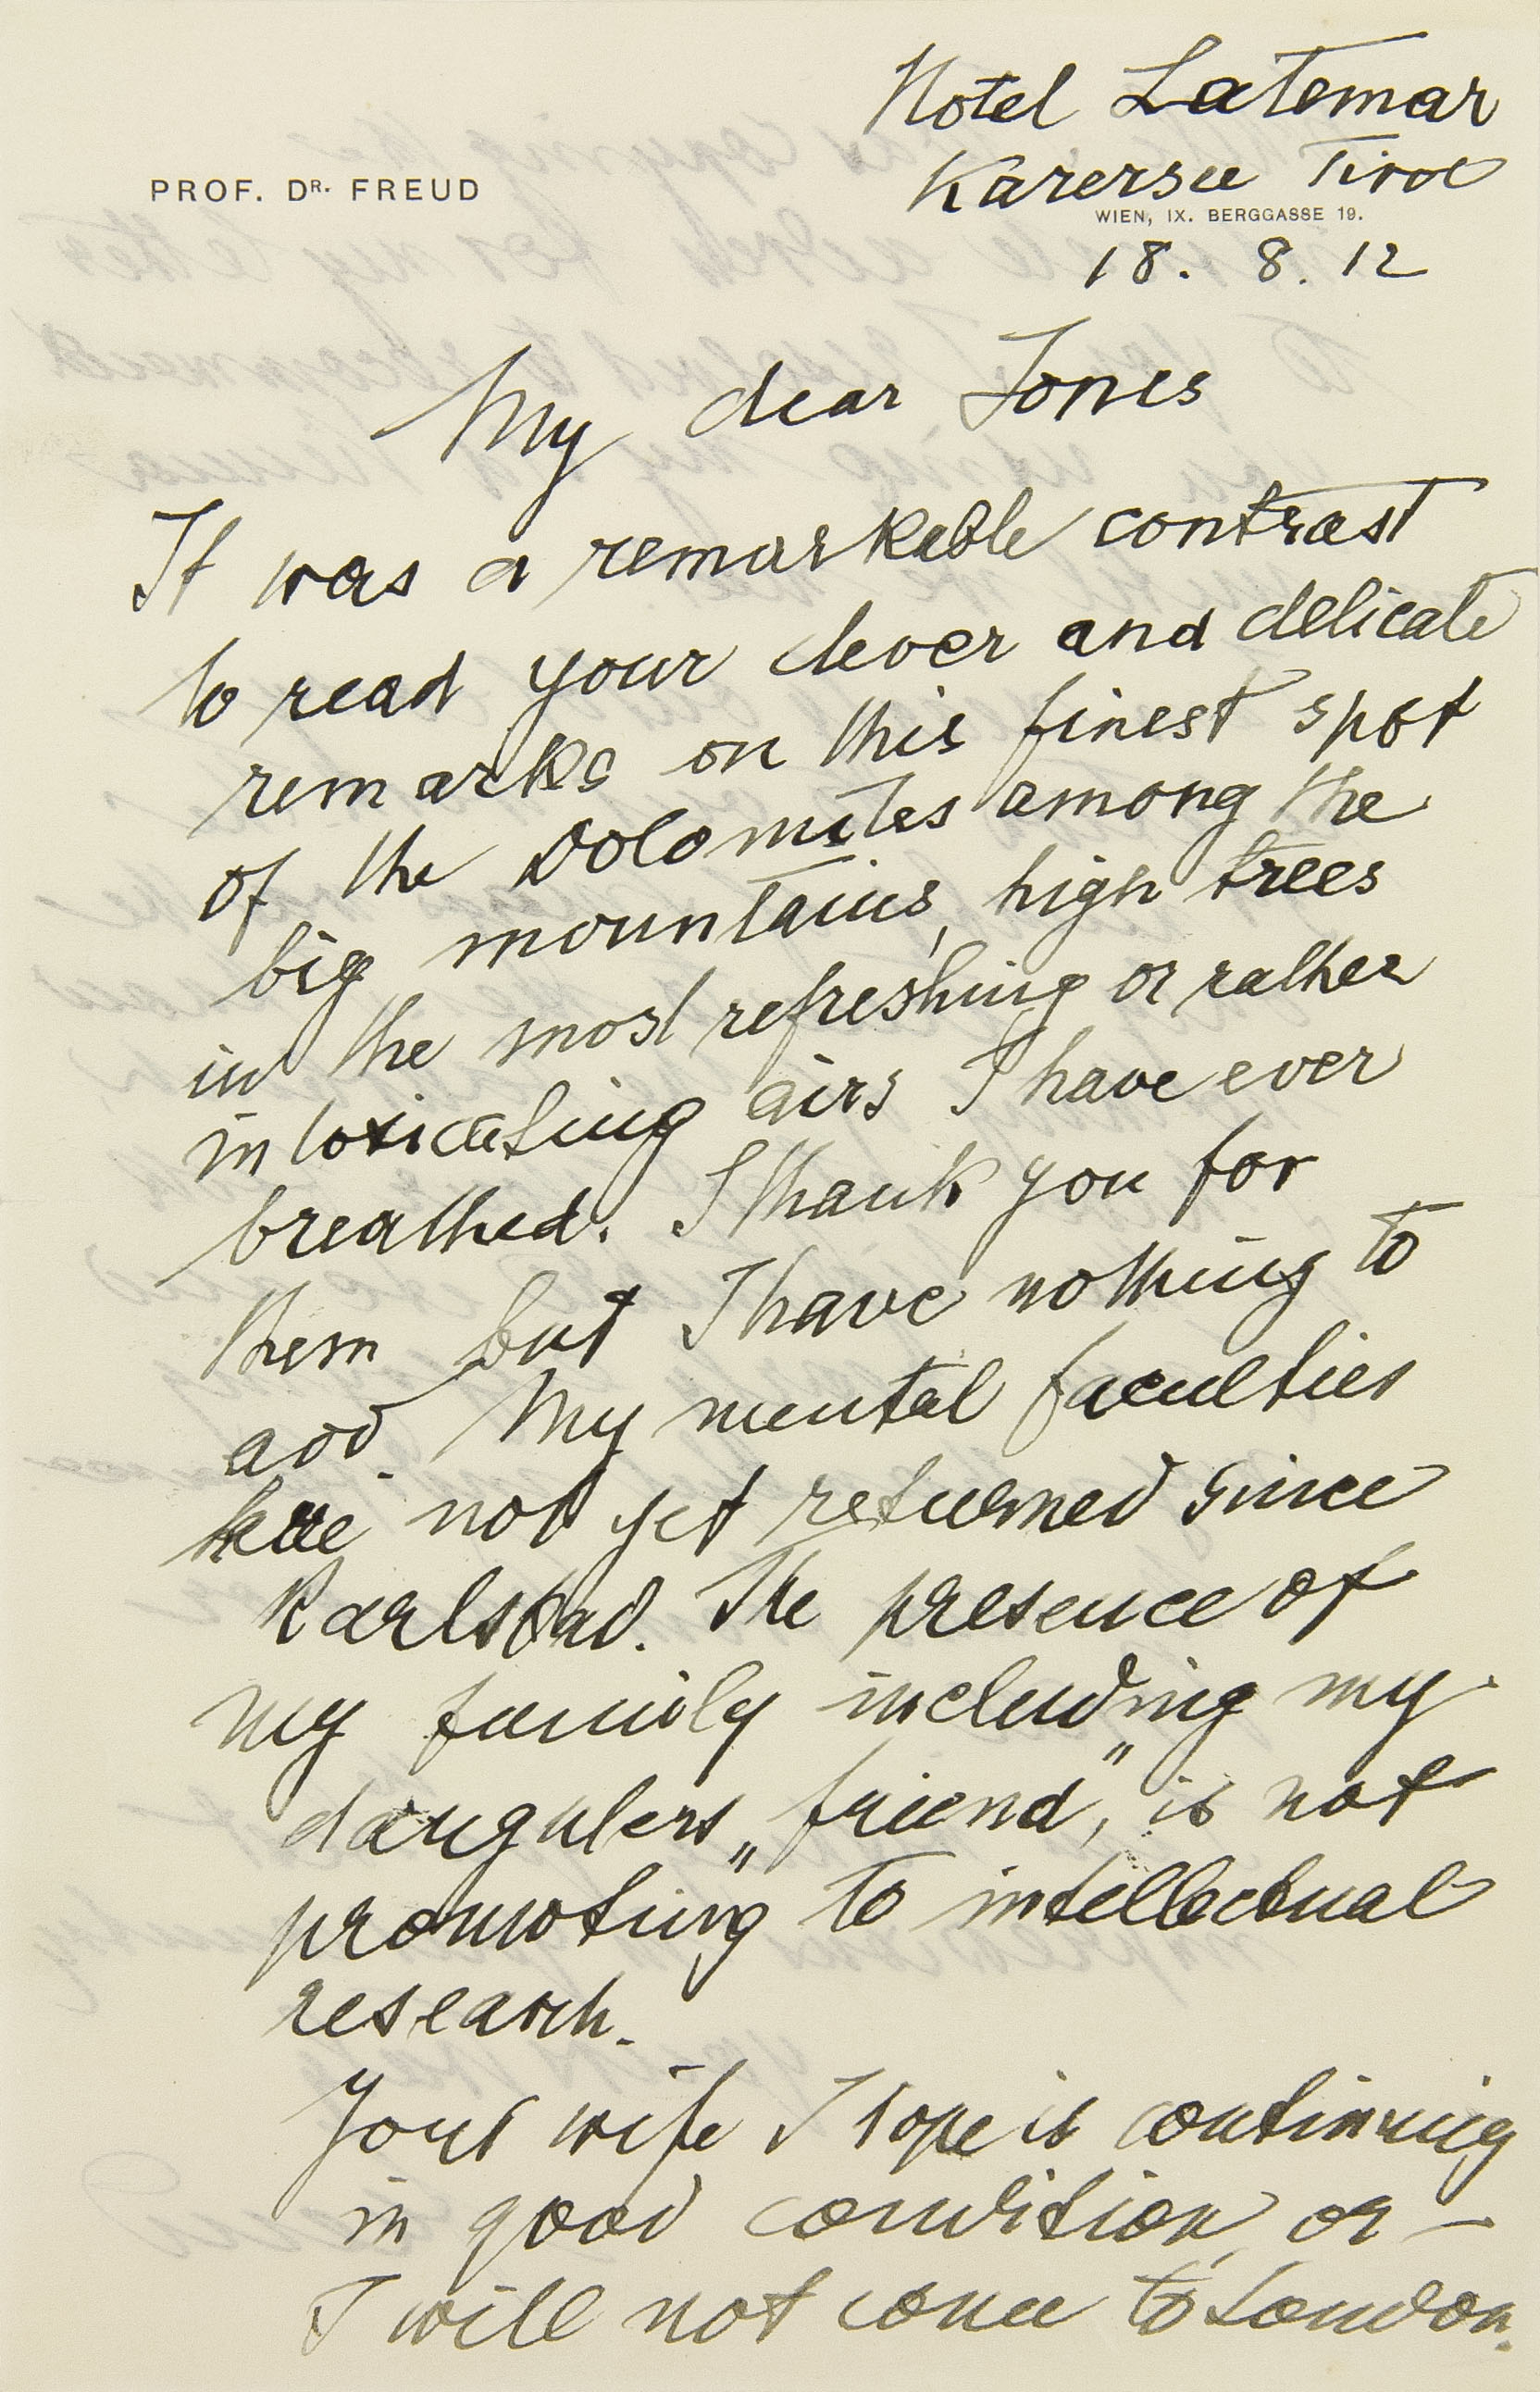 Hotel Latemar
Karersee Tirol
PROF. DR. FREUD
WIEN, IX. BERGGASSE 19.
18. 8. 12
My dear Jones
It was a remarkable contrast
to read your clever and delicate
remarks on this finest spot
of the Dolomites among the
big mountains, high trees
in the most refreshing or rather
intoxicating airs I have ever
breathed. I thank you for
them but I have nothing to
add. My mental faculties
have not yet returned since
Karlsbad. The presence of
my family including my
daughters „friend”, is not
promoting to intellectual
research.
Your wife I hope is continuing
in good condition or —
I will not come to London.